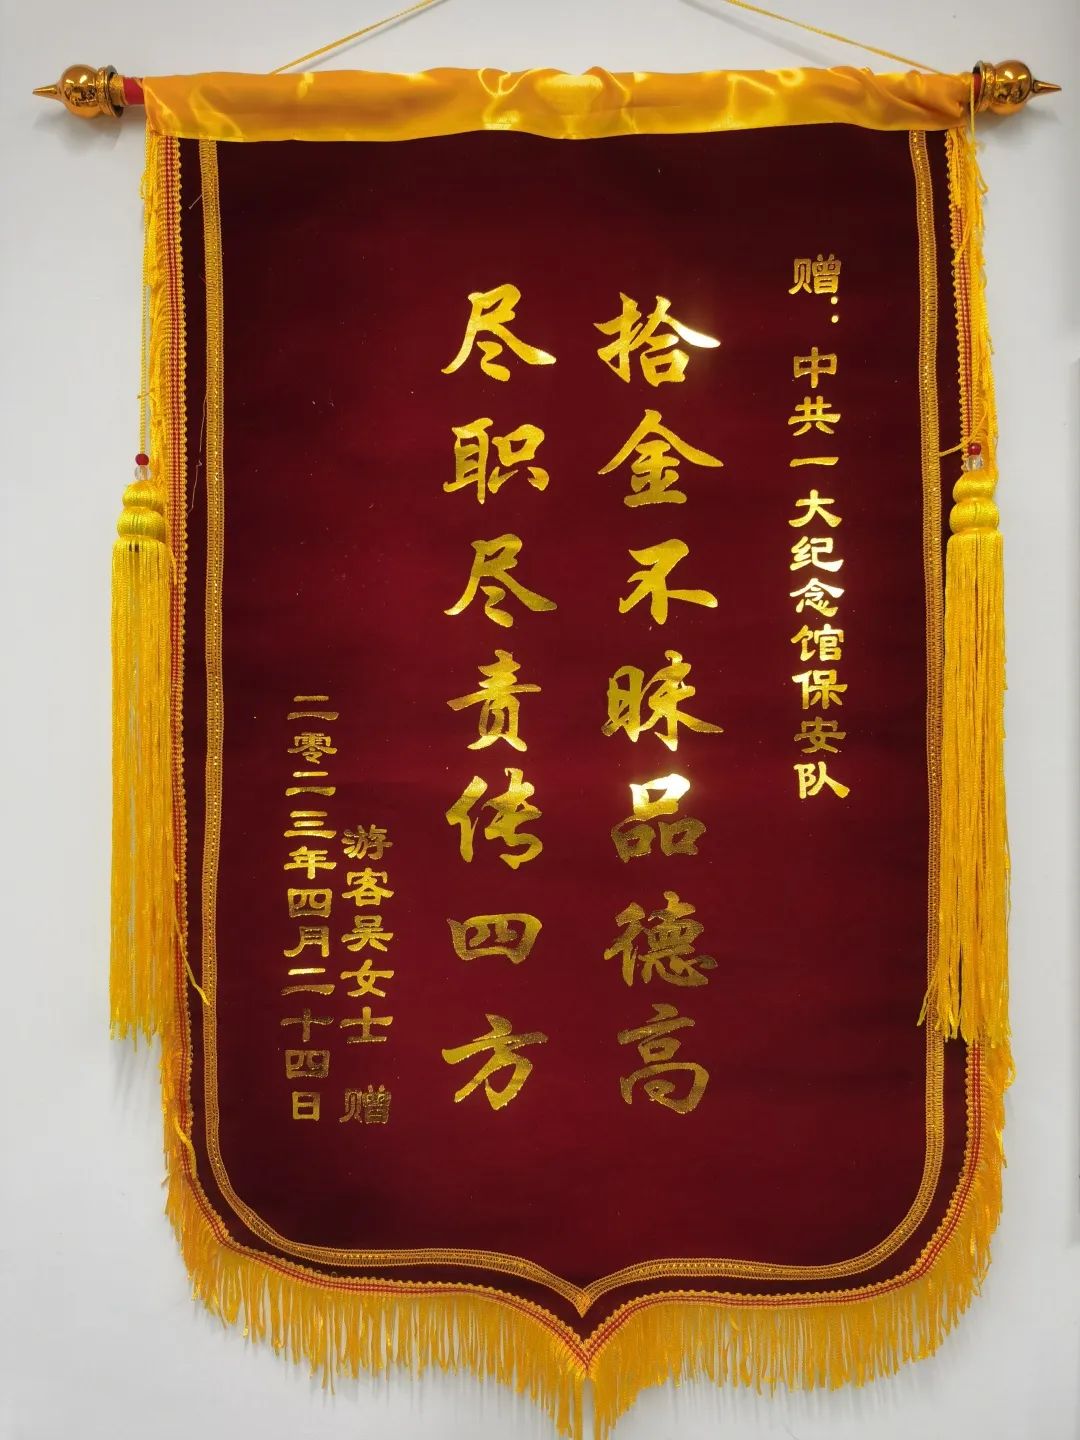 赠：中共一大纪念馆保安队
拾金不昧品德高
尽职尽责传四方
游客吴女士 赠
二零二三年四月二十四日